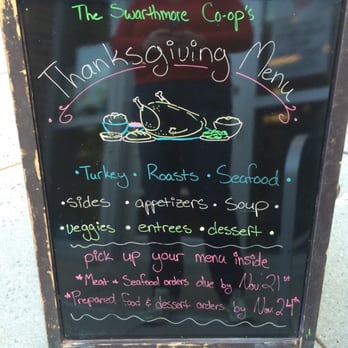 The Swarthmore Co-op's
Thanksgiving Menu
• Turkey • Roasts • Seafood •
• sides • appetizers • soup •
veggies • entrees • dessert •
pick up your menu inside
*Meat & Seafood orders due by Nov. 21st
*Prepared food & dessert orders by Nov. 24th